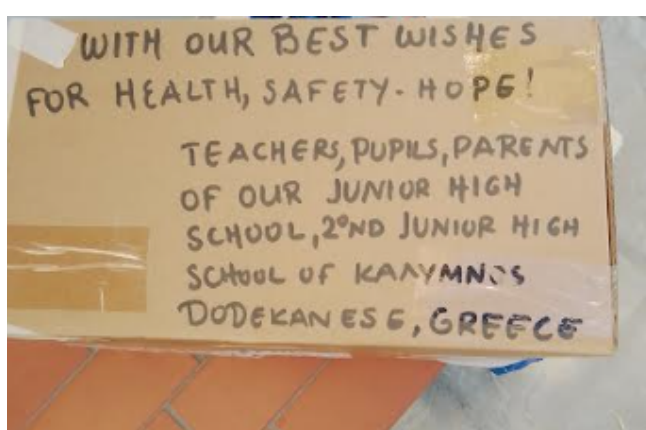 WITH OUR BEST WISHES
FOR HEALTH, SAFETY - HOPE!
TEACHERS, PUPILS, PARENTS
OF OUR JUNIOR HIGH
SCHOOL, 2ºND JUNIOR HIGH
SCHOOL OF KALYMNOS
DODEKANESE, GREECE